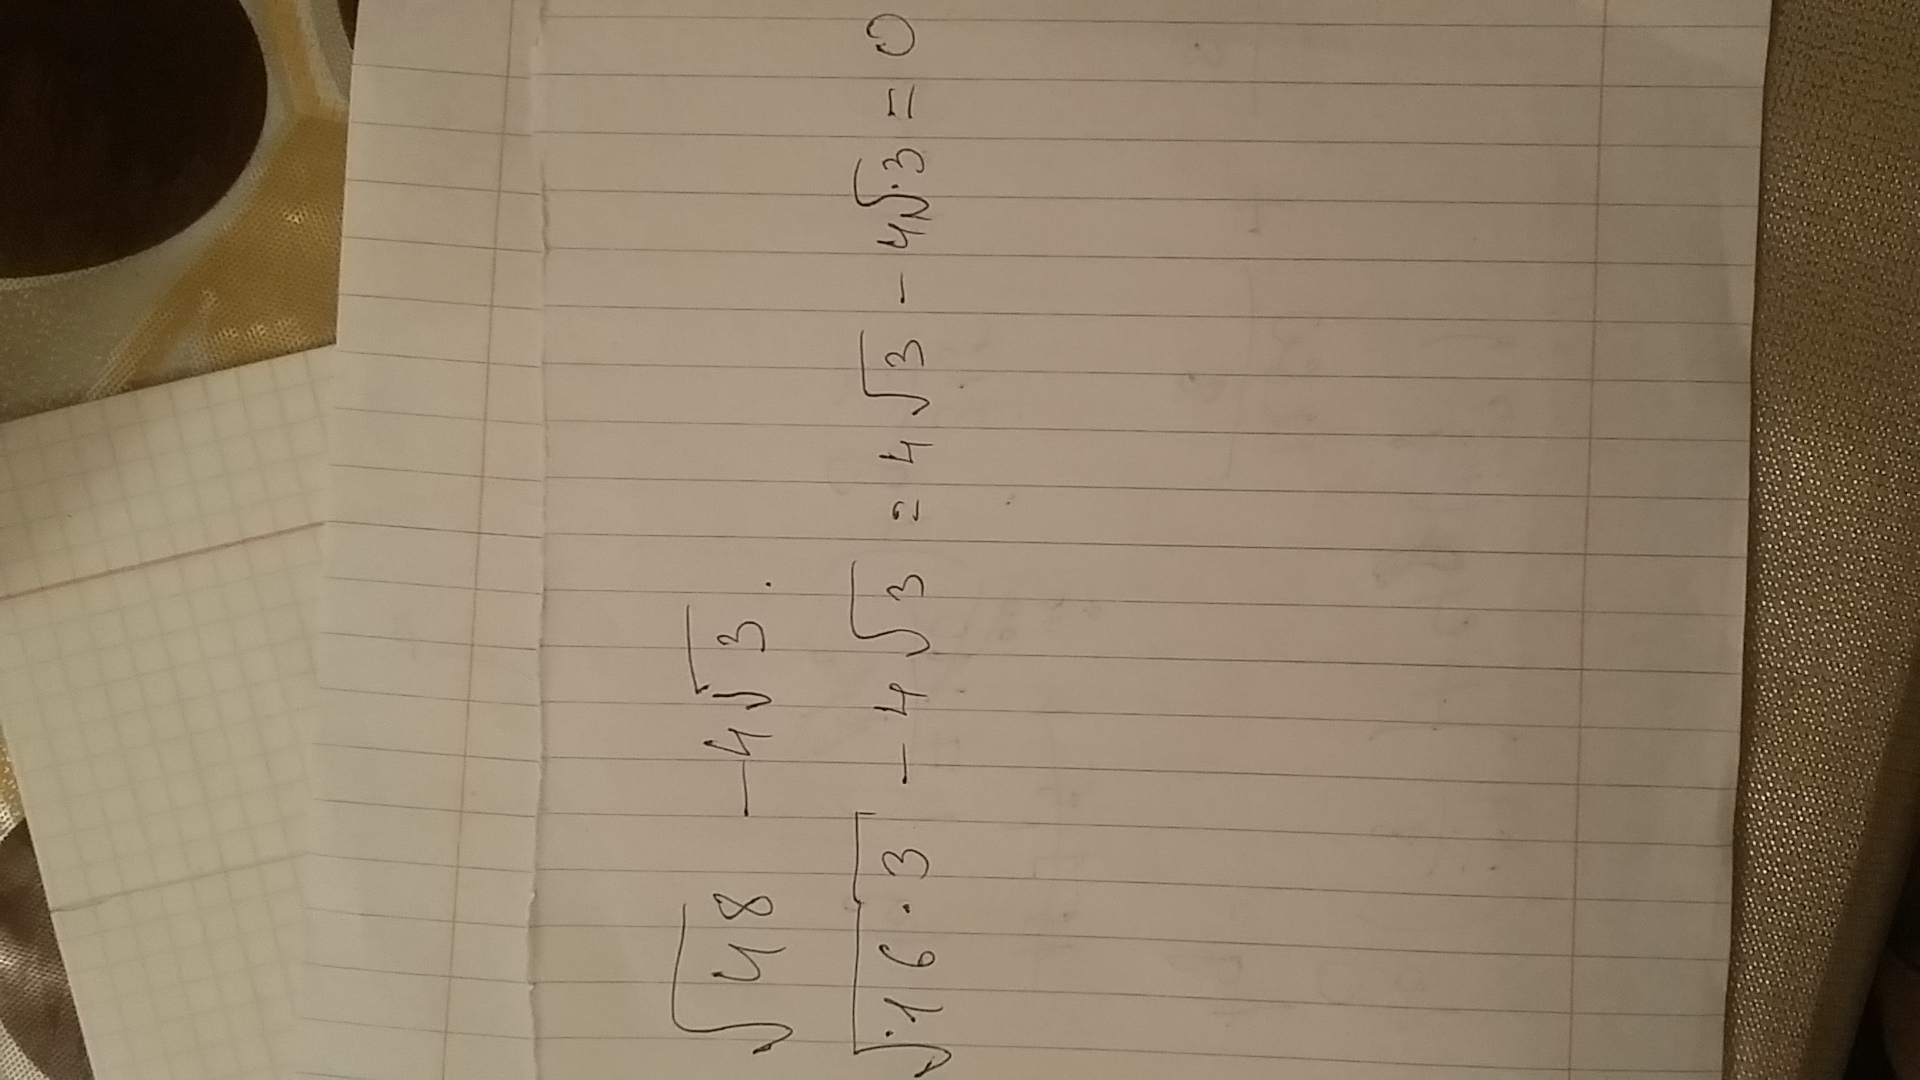 √48 - 4√3.
√16·3 - 4√3 = 4√3 - 4√3 = 0